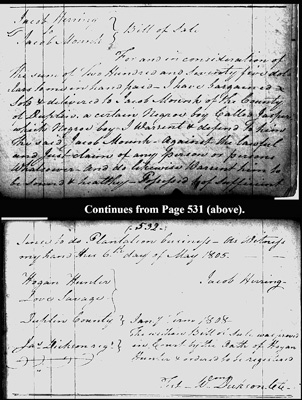 Jacob Herring
To
Jacob Monk
Bill of Sale
For and in consideration of
the sum of two Hundred and Seventy five dol
lars to me in hand paid - I have bargained
Sold & delivered to Jacob Monk of the County
of Duplin, a certain Negroe boy Called Jasper
which Negroe boy I Warrent & defend to him
the said Jacob Monk - Against the Lawful
and Just claim of any person or persons
Whatsoever - and do likewise Warrent him to
be Sound & healthy - Possessed of Sufficient
Continues from Page 531 (above).
532
Sense to do Plantation business - As Witness
my hand this 6th day of May 1805.
Hogan Hunter
Jacob Herring
Love Savage
Duplin County
Jany Term 1808
The within Bill of Sale was proved
in Court by the Oath of Hogan
Hunter & ordered to be registered
Jas Dickson Regr
Test Wm Dickson